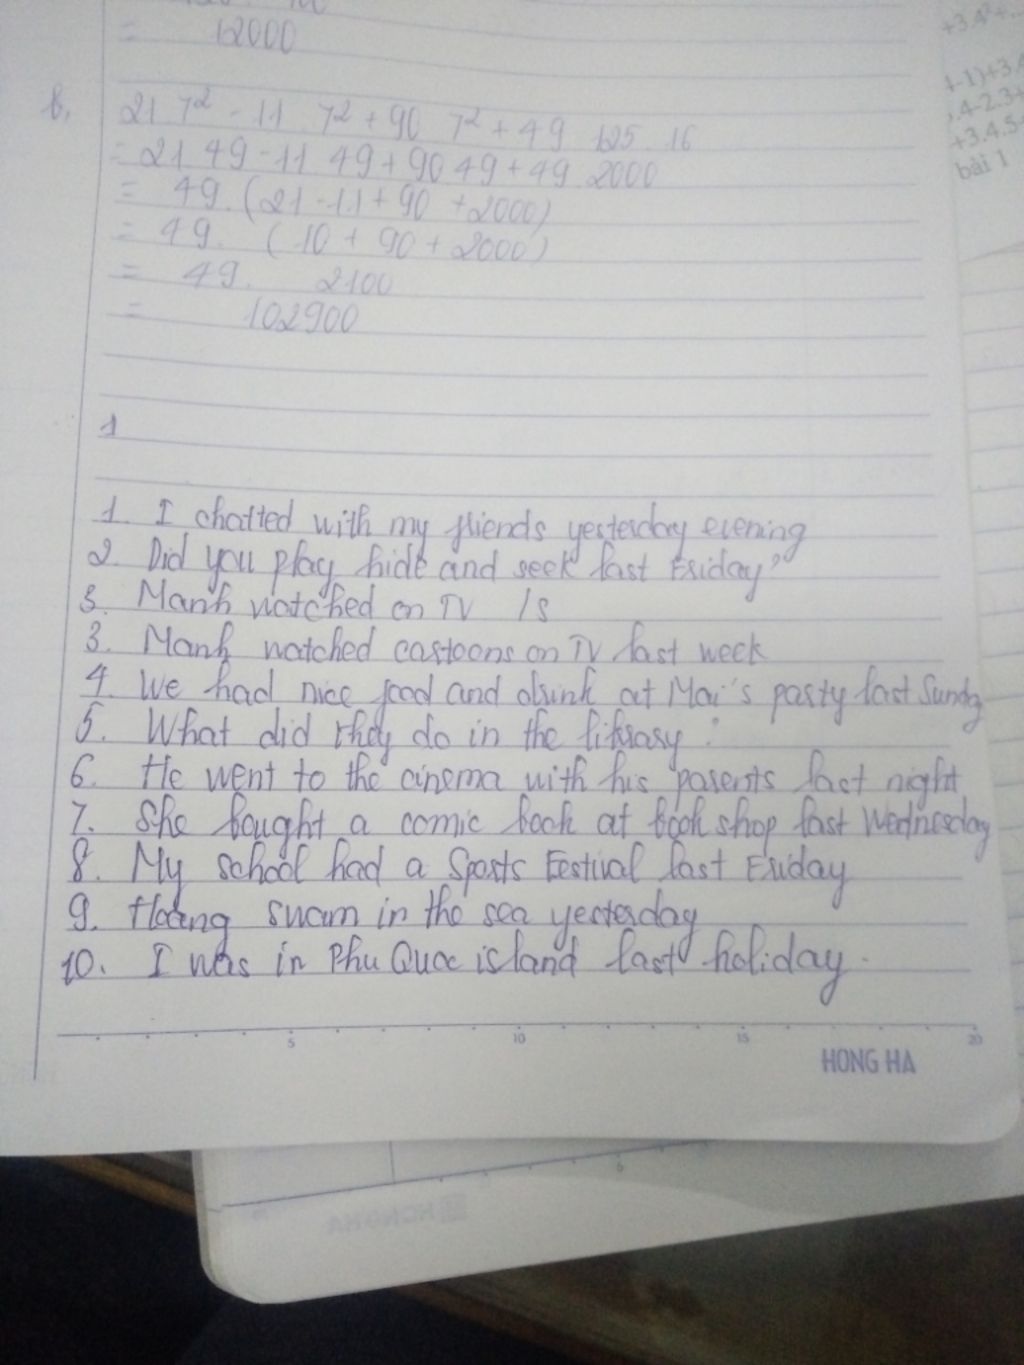 = 12000
b,
21 7² - 11 7² + 90 7² + 49 125 . 16
= 21 49 - 11 49 + 90 49 + 49 2000
= 49. (21 - 11 + 90 + 2000)
= 49. (10 + 90 + 2000)
= 49. 2100
= 102900
1
1. I chatted with my friends yesterday evening
2. Did you play hide and seek last Friday?
3. Manh watched on TV ls
3. Manh watched cartoons on TV last week
4. We had nice food and drink at Mai's party last Sunday
5. What did they do in the library ?
6. He went to the cinema with his parents last night
7. She bought a comic book at book shop last Wednesday
8. My school had a Sports Festival last Friday
9. Hoang swam in the sea yesterday
10. I was in Phu Quoc island last holiday.
5 10 15 20
HONG HA
6
+3.4²+...
+3.4.5
bài 1